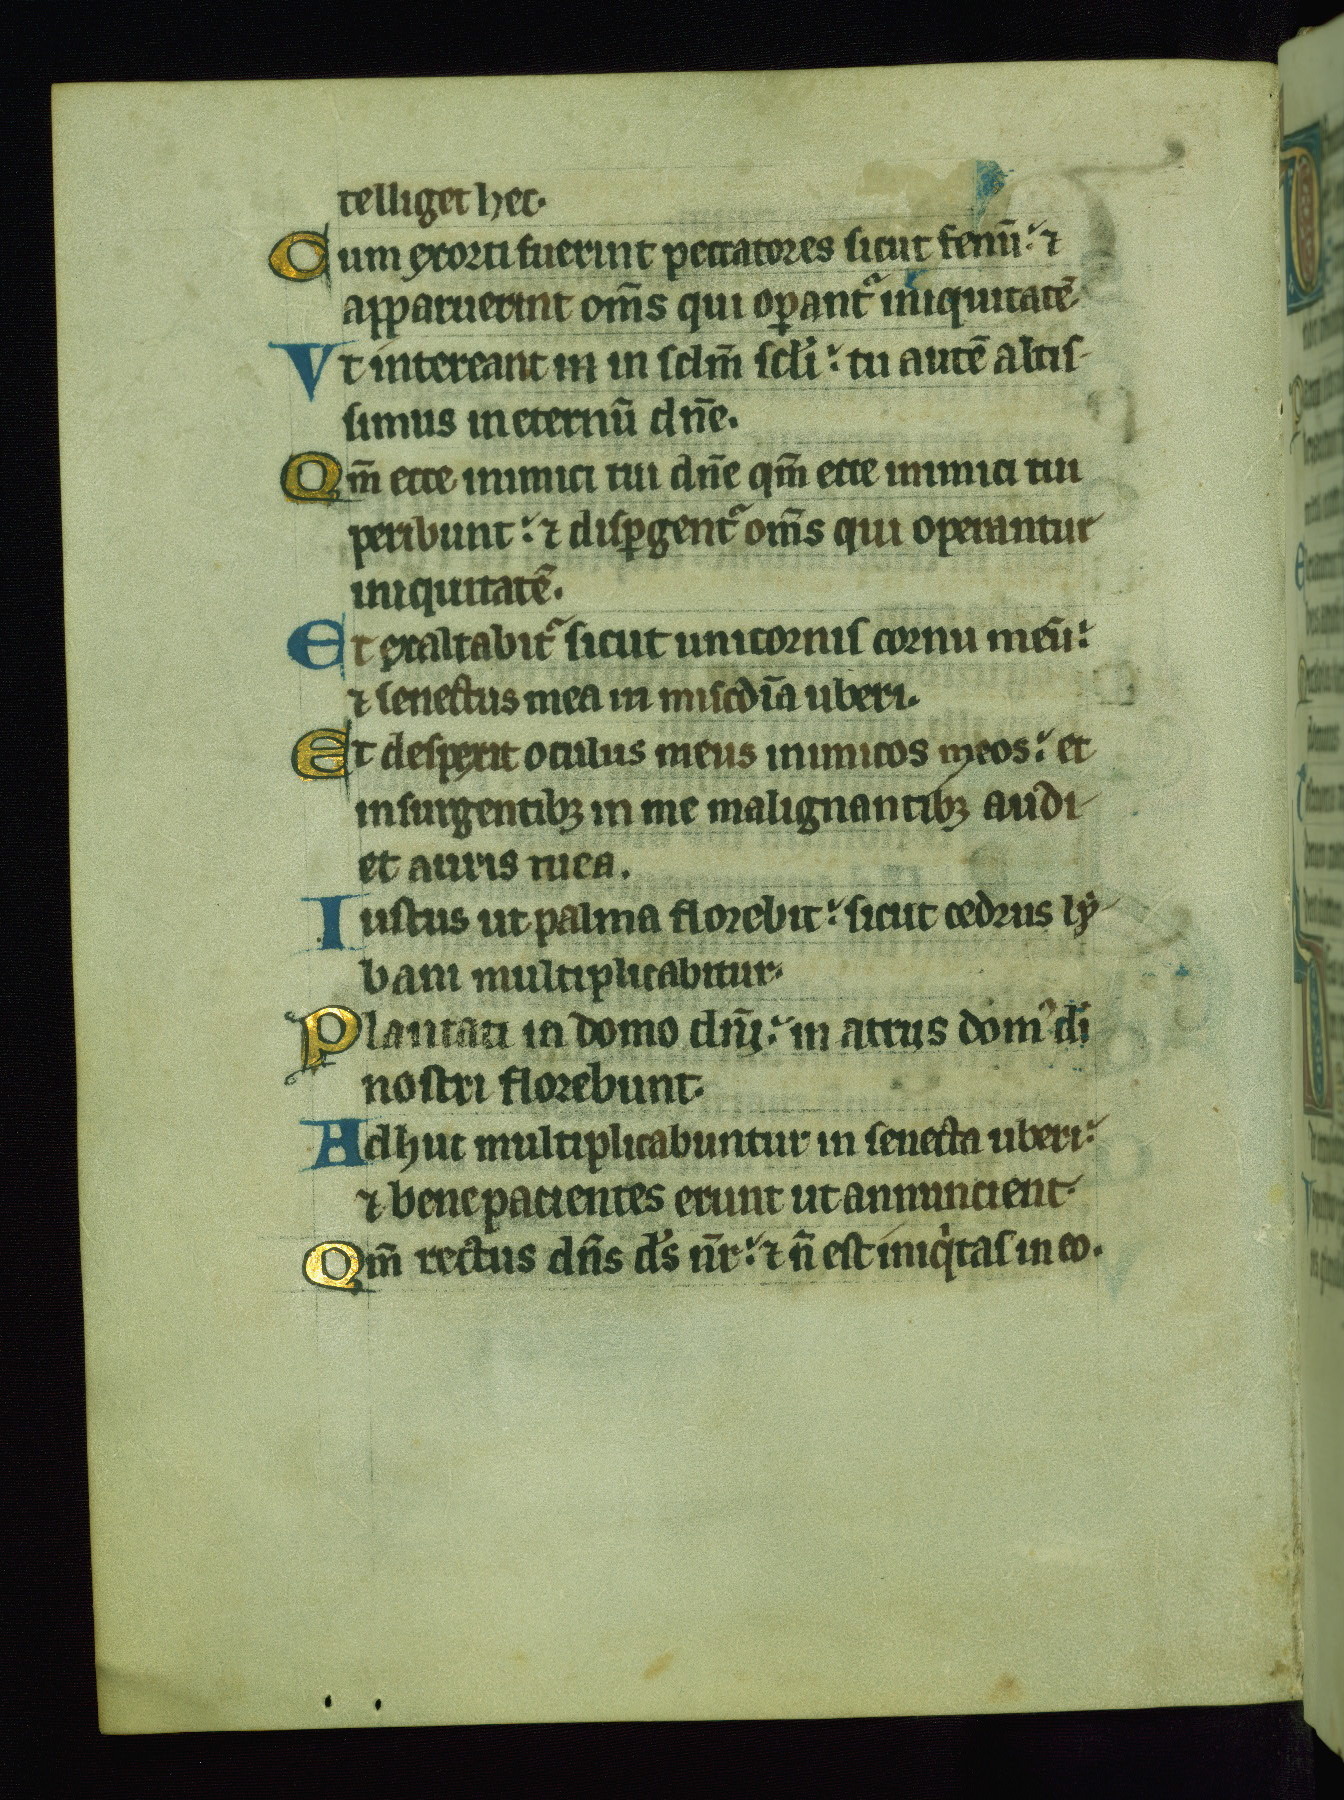 telliget hec.
Cum exorti fuerint peccatores sicut fenū: ⁊
apparuerint om̄s qui oꝑant᷑ iniquitatē
Vt intereant in in sclm̄ scli: tu autē altis-
simus in eternū dn̄e.
Qm̄ ecce inimici tui dn̄e qm̄ ecce inimici tui
peribunt: ⁊ disꝑgent᷑ om̄s qui operantur
iniquitatē.
Et exaltabit᷑ sicut unicornis cornu meū:
⁊ senectus mea in miscdīa uberi.
Et despexit oculus meus inimicos meos: et
insurgentibꝫ in me malignantibꝫ audi
et auris tuea.
Iustus ut palma florebit: sicut cedrus ly
bani multiplicabitur.
Plantati in domo dn̄i: in atriis domꝰ di
nostri florebunt.
Adhuc multiplicabuntur in senecta uberi:
⁊ bene pacientes erunt ut annuncient
Qm̄ rectus dn̄s ds n̄r: ⁊ n̄ est iniqͥtas in eo.